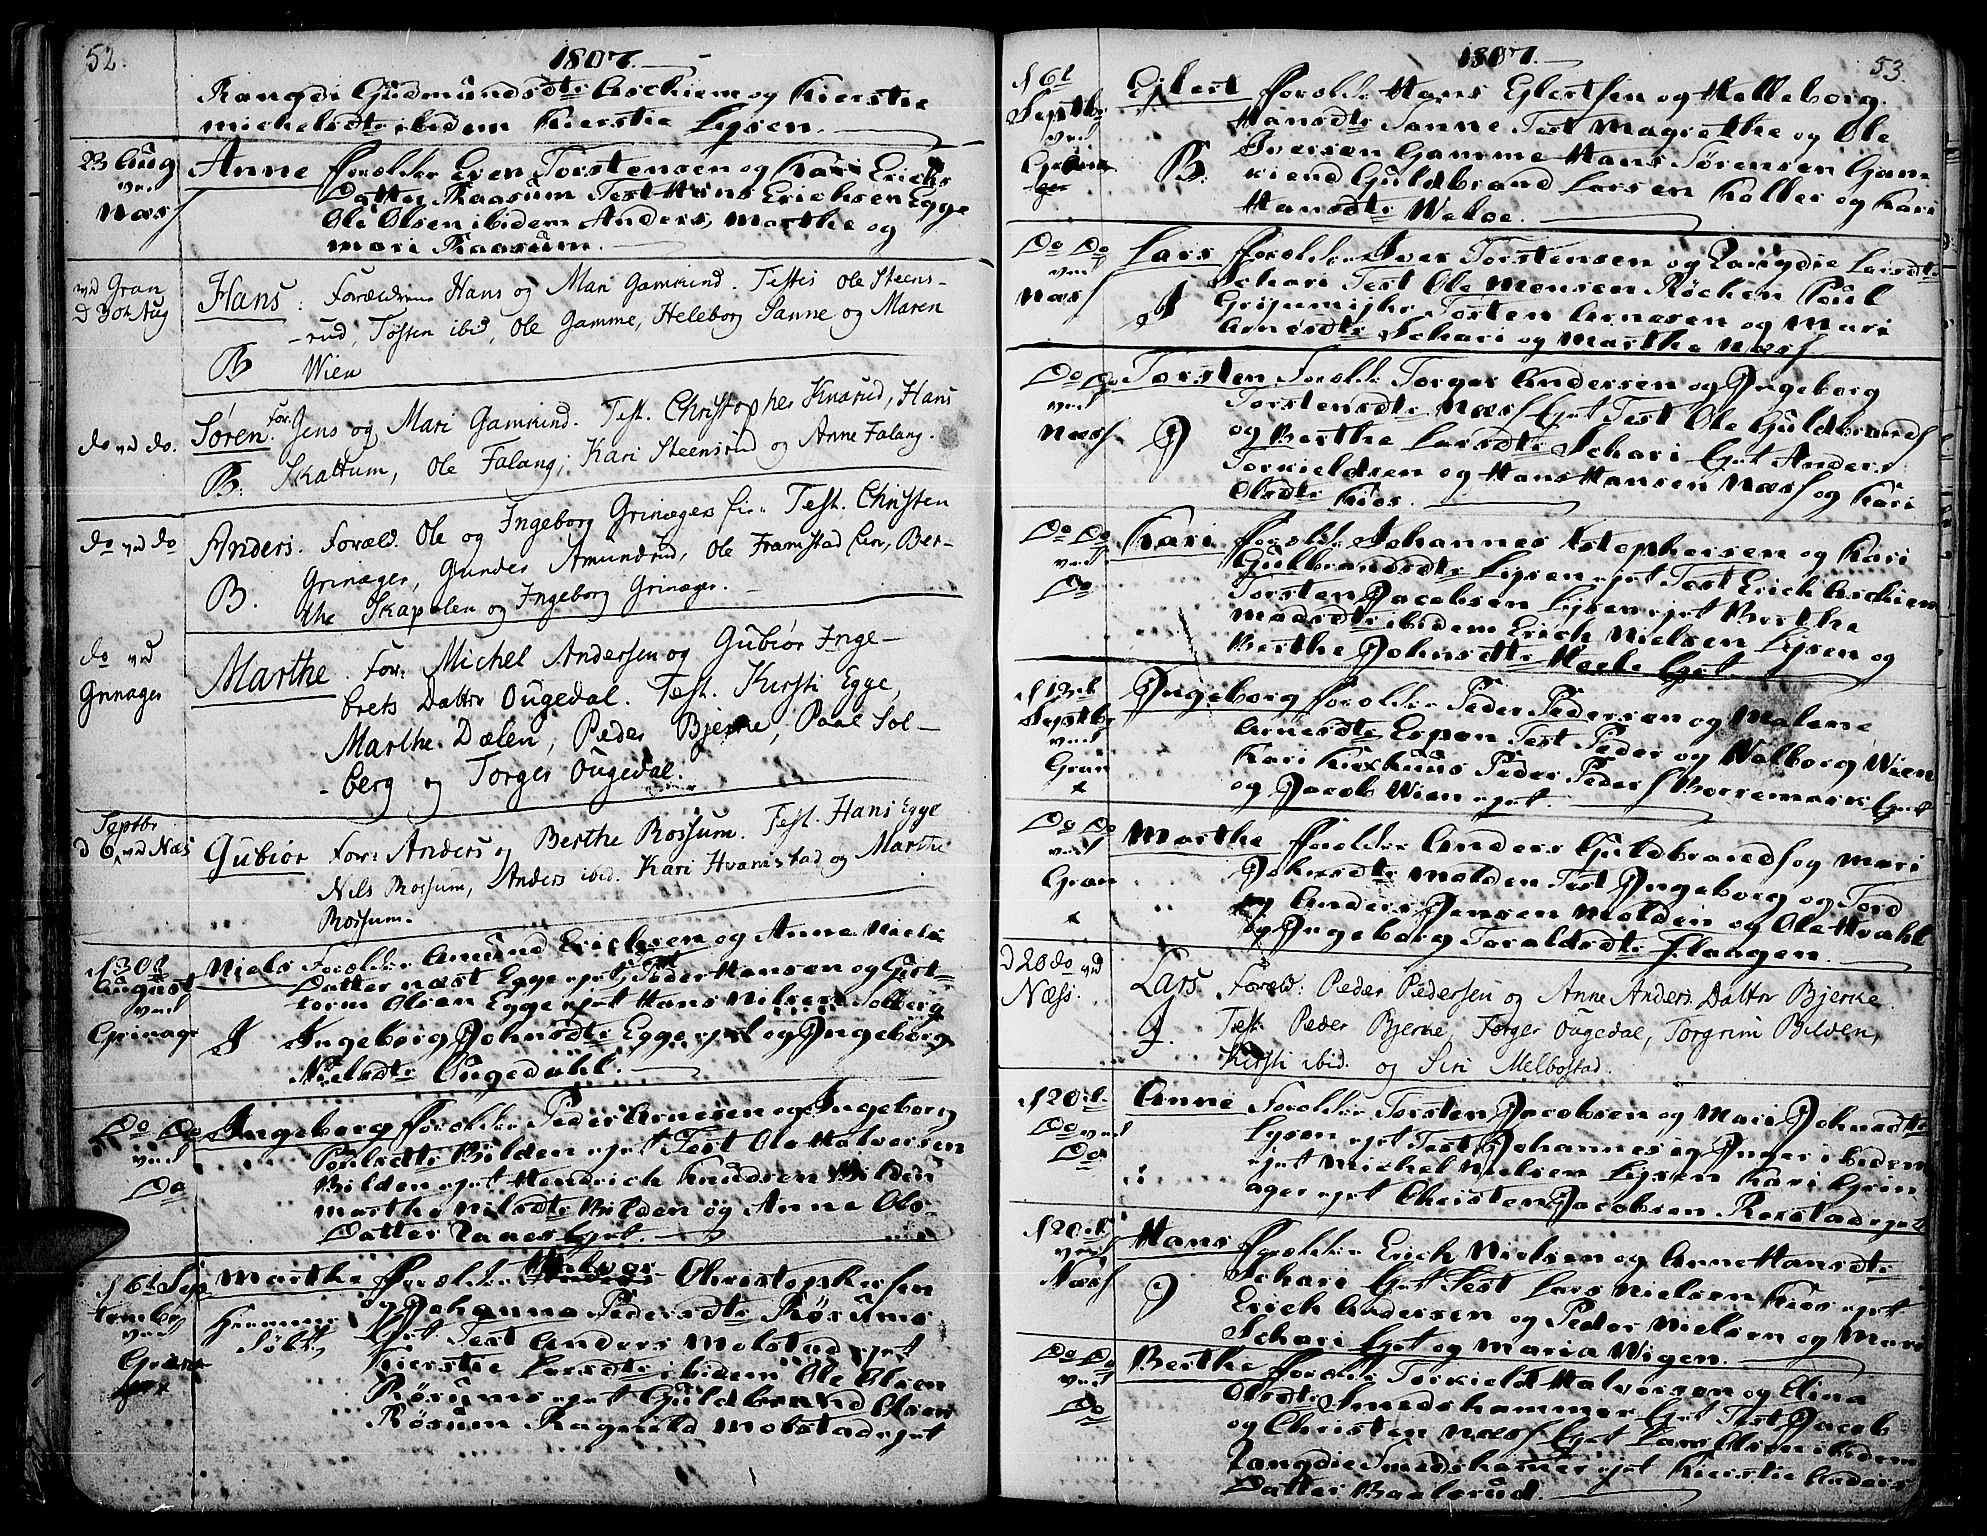 52.
1807.
Rangdi Gudmundsdtr Aschiem og Kierstie
Michelsdtr ibidem Kierstie Lysen.
23 Aug
ved
Næs
Anne Forælder Even Torstensen og Kari Erichs
Datter Raasum Test Hans Erichsen Egge
Ole Olsen ibidem Anders, Marthe og
Mari Raasum.
ved Gran
d 30t Aug
Hans: Forældrene Hans og Mari Gamkind. Testes Ole Steens-
-rud, Tosten ibid, Ole Gamme, Heleborg Sanne og Maren
B Wien
do ved do.
Søren. For. Jens og Mari Gamkind. Test. Christopher Knarud, Hans
B. Skattum, Ole Falang, Kari Steensrud og Anne Falang.
do ved do
Anders. Foræld. Ole og Ingeborg Grinager Test. Christen
Grinager, Gunder Amundrud, Ole Framstad Ber-
B. the Skapelen og Ingeborg Grinager.
do ved
Grinager
Marthe. For: Michel Andersen og Gubiør Inge-
brets Datter Ougedal. Test. Kirsti Egge,
Marthe Dælen, Peder Bjerke, Paal Sol-
-berg og Torger Ougedal.
Septbr
d 6 ved Næs
Gubiør For: Anders og Berthe Rossum. Test. Hans Egge
Nils Rossum, Anders ibid. Kari Hvamstad og Marthe
Rossum.
d 30t
August
ved
Grinager
Niels Forælder Amund Erichsen og Anne Niels
Datter næst Egge ejet, Test Peder Hansen og Gut-
torm Olsen Egge ejet Hans Nilsen Solberg
I Ingeborg Johnsdtr Egge ejet og Ingeborg
Nielsdtr Ougedahl.
Do Do
ved
Do
Ingeborg Forælder Peder Arnesen og Ingeborg
Poulsdtr Bilden ejet Test Ole Halvorsen
Bilden ejet Hendrich Knudsen Bilden
Marthe Nilsdtr Bilden og Anne Ols-
Datter Ejet.
d 6t Sep
tember
ved
Marthe Forælder Halvor Christophersen
hiemme og Johanna Pedersdtr Røsums
døbt Ejet Test Anders Molstad ejet
Kierstie Larsdtr ibidem Ole Olsen
Røsums ejet Guldbrand Olsen
Røsum Ragnild Molstad ejet
1807.
53.
d 6t
Septbr
ved
Eglest Forælder Hans Eglestsen og Helleborg
Hansdtr Sanne Test Magrethe og Ole
Iversen Gamme Hans Sørensen Gam
B. kiend Guldbrand Larsen Koller og Kari
Hansdtr Weloe.
Do Do
ved
Næs
Lars Forælder Iver Torstensen og Rangdie Larsdtr
Schari Test Ole Monsen Røchen Poul
I Torsten Arnesen og Mari
Arnesdtr Schari og Marthe Næs
Do Do
ved
Næs
Torsten Forælder Torger Andersen og Ingeborg
Torstensdtr Næs Ejet Test Ole Guldbrands
I og Berthe Larsdtr Schari Ejet Anders
Torkieldsen og Hans Hansen Næs og Kari
Olsdtr Kios.
Do Do
ved
Do
Kari Forælder Johannes Stephersen og Kari
Gulbrandsdtr Lysen ejet Test Erich Aschiem
Torsten Jacobsen Lysen ejet Berthe
ibidem Erich Nielsen Lysen og
Berthe Johnsdtr Ejet.
d 13t
Septbr
ved
Gran
x
Ingeborg Forælder Peder Pedersen og Malene
Arnesdtr Espen Test Peder og Walborg Wien
Kari Peder Peders Borremark Ejet
og Jacob Wien ejet.
Do Do
ved
Gran
x
Marthe Forælder Anders Guldbrands og Mari
Johnsdtr Molden Test Ingeborg og Tord
og Anders Jensen Molden og Ole Hvahl
og Ingeborg Toraldsdtr Flangen.
d 20 do ved
Næss.
Lars. Foræld: Peder Pedersen og Anne Anders Datter Bjerke.
I. Test. Peder Bjerke, Torger Ougedal, Torgrim Bilden,
Kirsti ibid. og Siri Melbostad.
d 20t
Do ved
Do
Anne Forælder Torsten Jacobsen og Mari Johnsdtr
Lysen ejet Test Johannes og Inger ibidem
ejet Michel Nielsen Lysen Kari Grin
ager ejet Christen Jacobsen Rekstad ejet
d 20t
ved
Næs
Hans Forælder Erich Nielsen og Anne Hansdtr
Schari Ejet Test Lars Nielsen Kios ejet
I Erich Andersen og Peder Nielsen og Mari
Schari Ejet og Maria Wigen.
Do Do
ved
Do
Berthe Forælder Torkield Halvorsen og Elina
Olsdtr Smedshammer Ejet Test Jacob
og Christen Næs Ejet Lars Olsen ibidem
Rangdie Smedshamer ejet Kierstie Anders
Datter Baalerud.